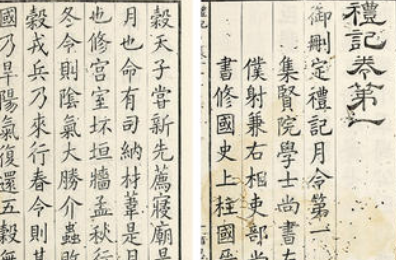 禮記卷第一
御刪定禮記月令第一
集賢院學士尚書左
僕射兼右相吏部尚
書修國史上柱國晉
穀天子嘗新先薦寢廟是
月也命有司納材葦是月
也修宮室坏垣牆孟秋行
冬令則陰氣大勝介蟲敗
穀戎兵乃來行春令則其
國乃旱陽氣復還五穀無